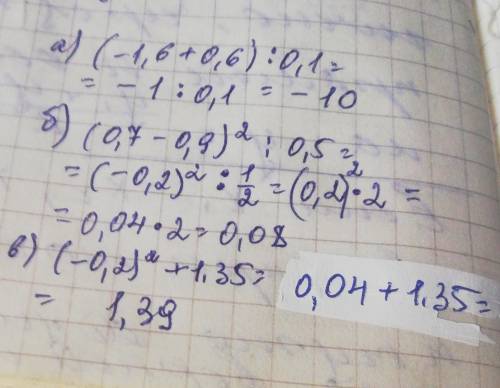 а) (-1,6+0,6):0,1=
= -1:0,1 = -10
б) (0,7-0,9)²:0,5=
=(-0,2)²:1/2=(0,2)²·2=
=0,04·2=0,08
в) (-0,2)²+1.35= 0,04+1.35=
= 1,39